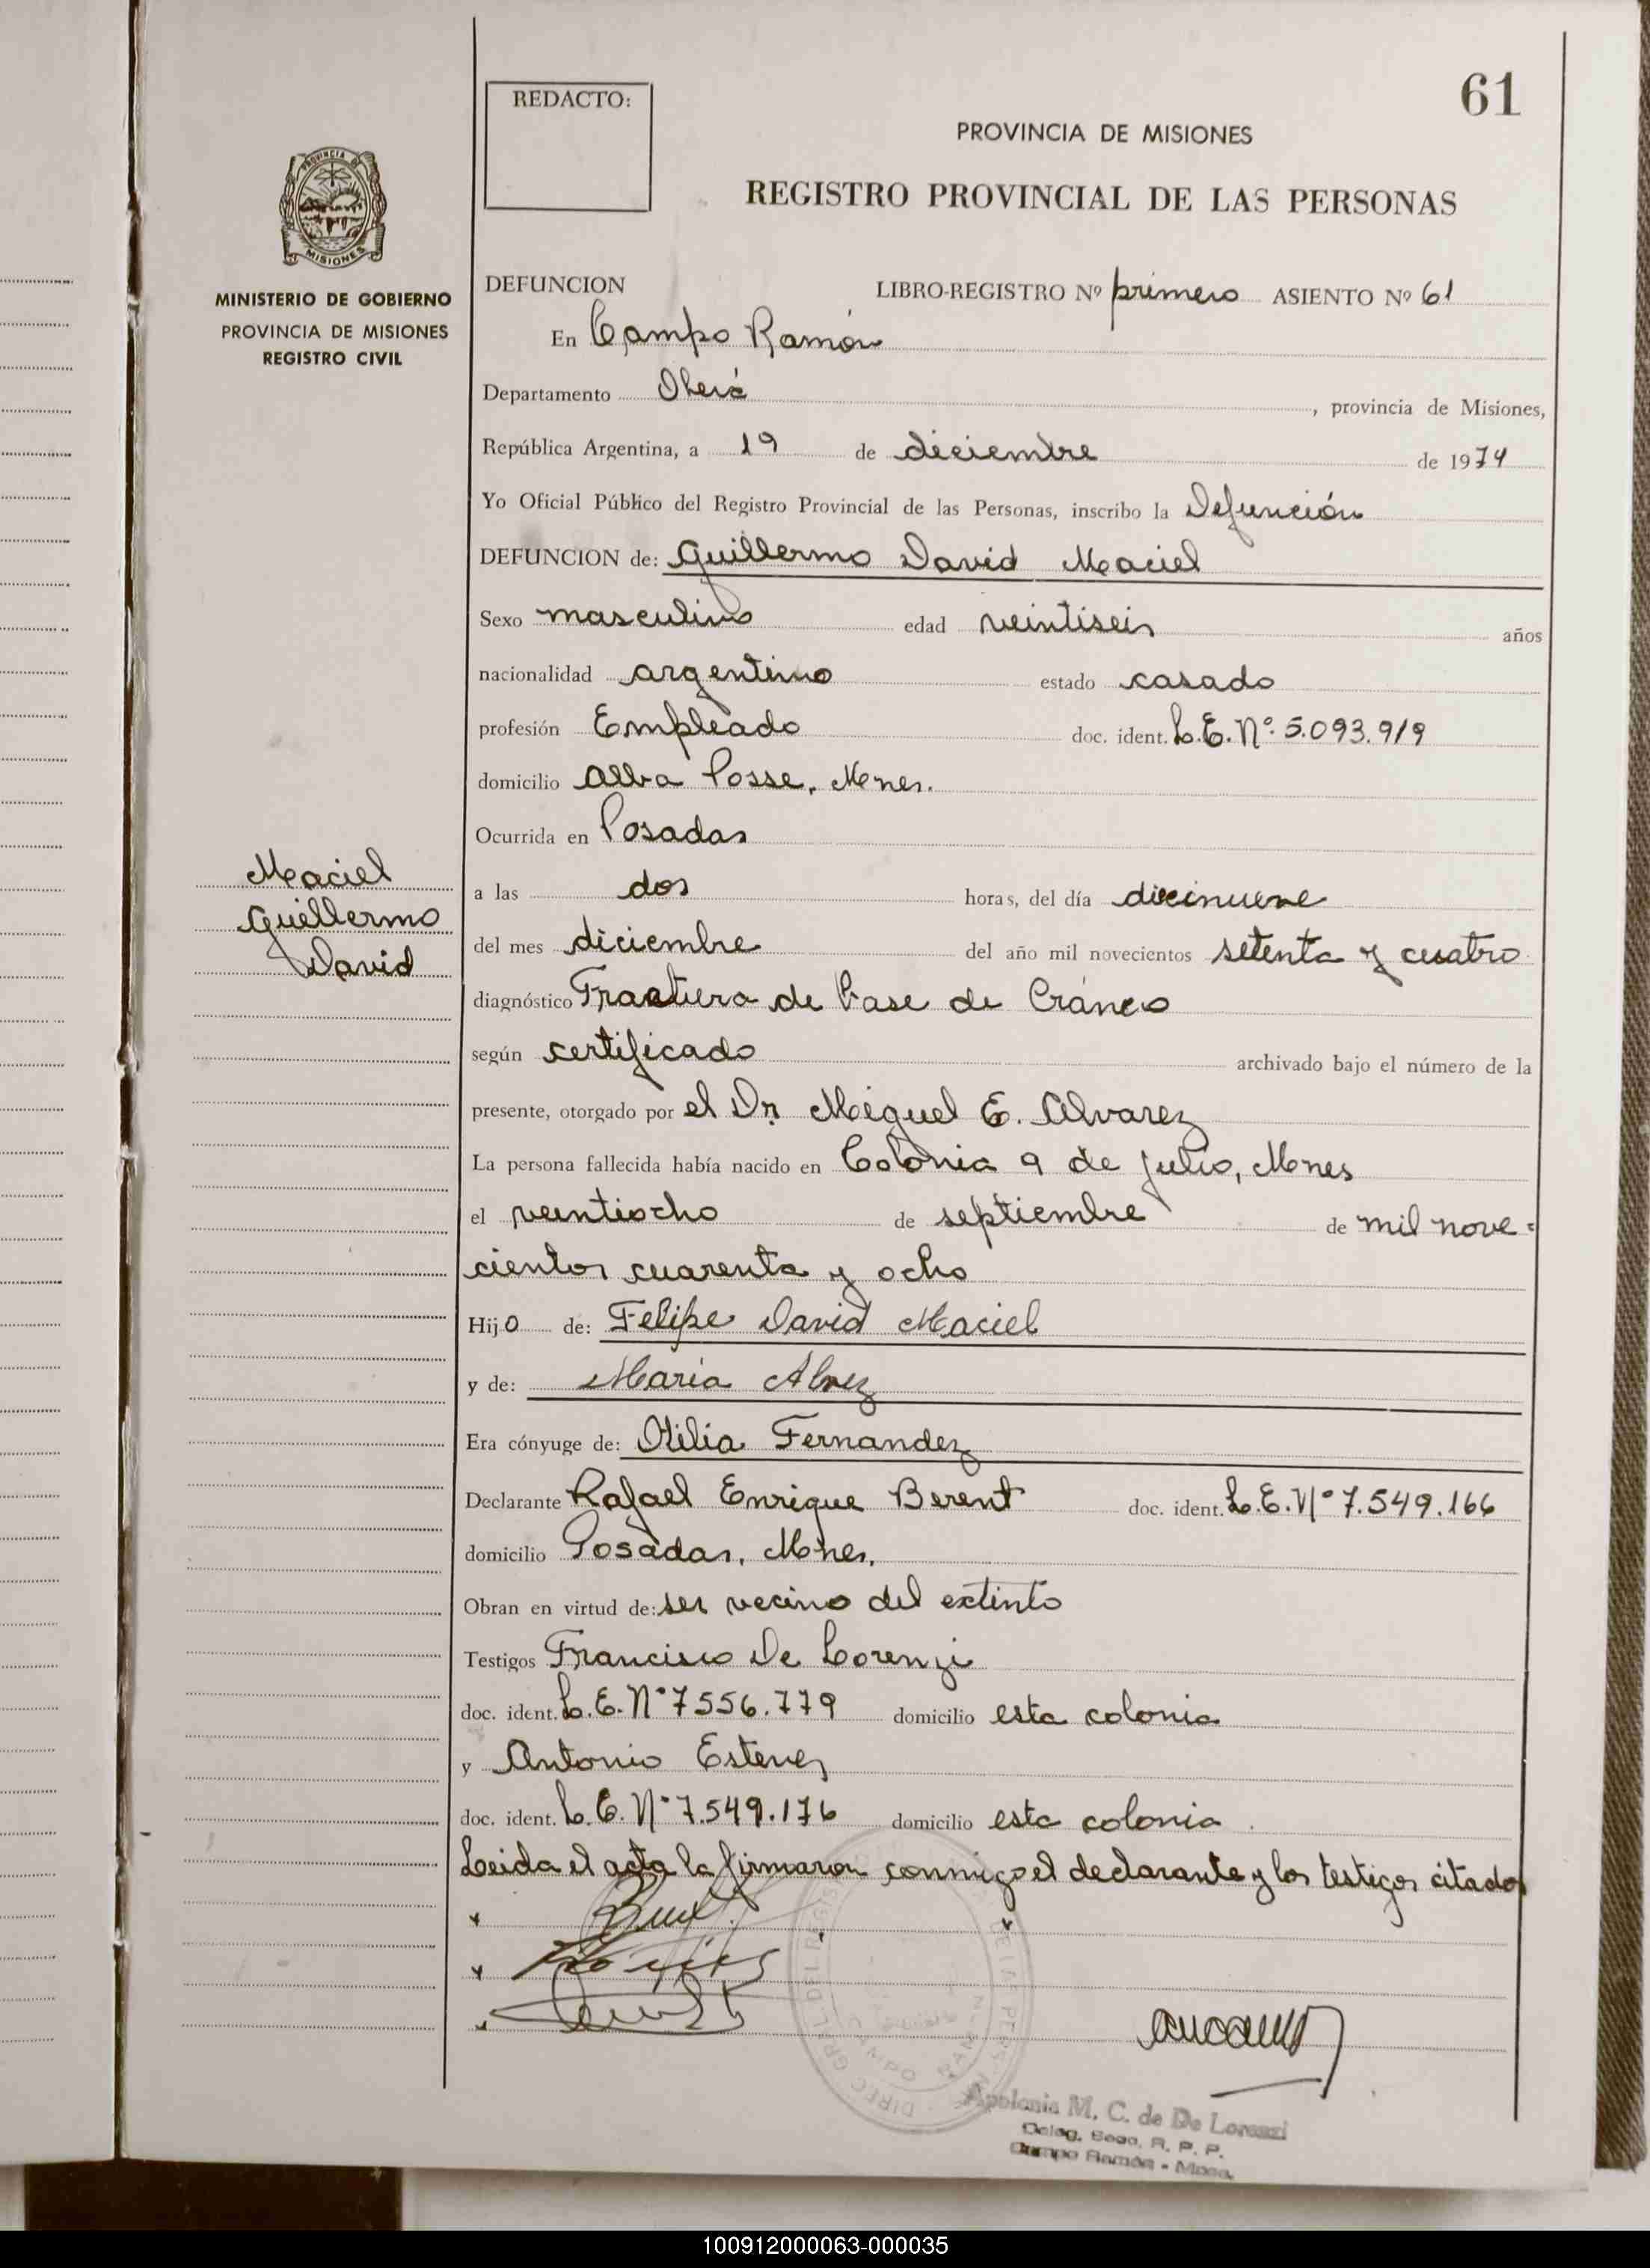 61
REDACTO:
PROVINCIA DE MISIONES
REGISTRO PROVINCIAL DE LAS PERSONAS
PROVINCIA DE
MISIONES
MINISTERIO DE GOBIERNO
PROVINCIA DE MISIONES
REGISTRO CIVIL
DEFUNCION LIBRO-REGISTRO Nº primero ASIENTO Nº 61
En Campo Ramón
Departamento Oberá , provincia de Misiones,
República Argentina, a 19 de diciembre de 1974
Yo Oficial Público del Registro Provincial de las Personas, inscribo la Defunción
DEFUNCION de: Guillermo David Maciel
Sexo masculino edad veintiseis años
nacionalidad argentino estado casado
profesión Empleado doc. ident. L.E. Nº 5.093.919
domicilio Alba Posse, Mnes.
Ocurrida en Posadas
Maciel
Guillermo
David
a las dos horas, del día diecinueve
del mes diciembre del año mil novecientos setenta y cuatro
diagnóstico Fractura de Base de Cráneo
según certificado archivado bajo el número de la
presente, otorgado por el Dr. Miguel E. Alvarez
La persona fallecida había nacido en Colonia 9 de Julio, Mnes
el veintiocho de septiembre de mil nove=
cientos cuarenta y ocho
Hijo de: Felipe David Maciel
y de: María Alvez
Era cónyuge de: Otilia Fernandez
Declarante Rafael Enrique Berent doc. ident. L.E. Nº 7.549.166
domicilio Posadas, Mnes.
Obran en virtud de: ser vecino del extinto
Testigos Francisco De Lorenzi
doc. ident. L.E. Nº 7556.779 domicilio esta colonia
y Antonio Estevez
doc. ident. L.E. Nº 7.549.176 domicilio esta colonia.
Leida el acta la firmaron conmigo el declarante y los testigos citados
Apolonia M. C. de De Lorenzi
Deleg. Secc. R. P. P.
Campo Ramón - Mnes.
100912000063-000035